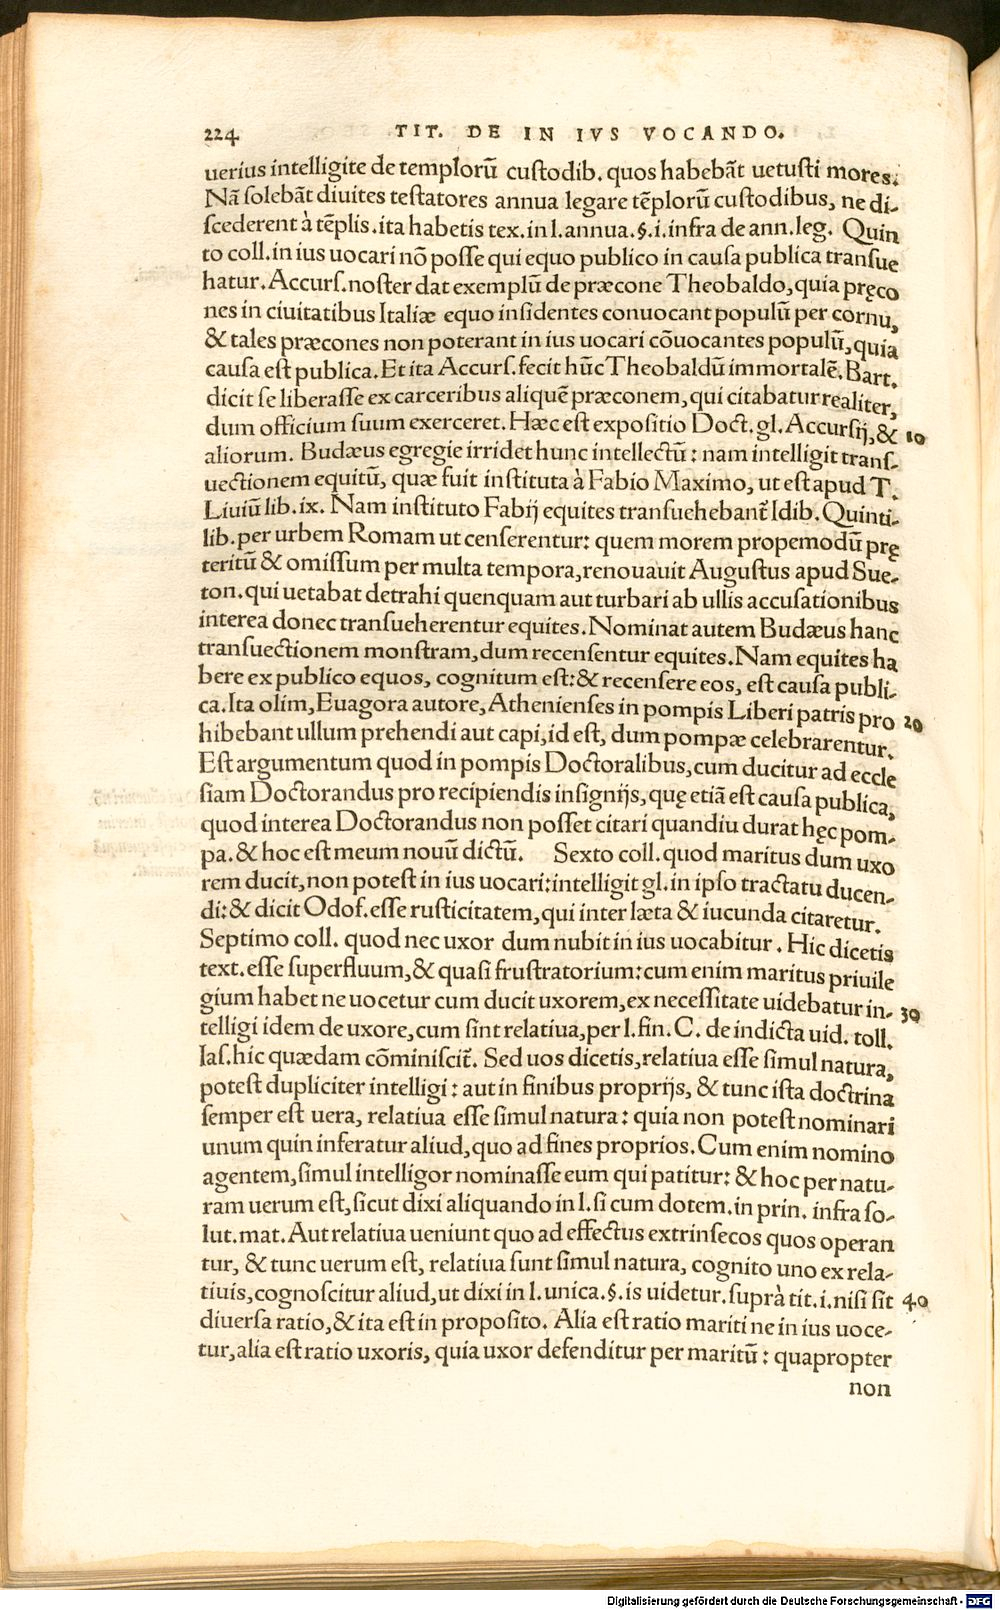 224 TIT. DE IN IVS VOCANDO.
uerius intelligite de templorū custodib. quos habebāt uetusti mores.
Nā solebāt diuites testatores annua legare tēplorū custodibus, ne di-
scederent à tēplis. ita habetis tex. in l. annua. §. i. infra de ann. leg. Quin
to coll. in ius uocari nō posse qui equo publico in causa publica transue
hatur. Accurs. noster dat exemplū de præcone Theobaldo, quia pręco
nes in ciuitatibus Italiæ equo insidentes conuocant populū per cornu,
& tales præcones non poterant in ius uocari cōuocantes populū, quia
causa est publica. Et ita Accurs. fecit hūc Theobaldū immortalē. Bart.
dicit se liberasse ex carceribus aliquē præconem, qui citabatur realiter,
dum officium suum exerceret. Hæc est expositio Doct. gl. Accursij, & 10
aliorum. Budæus egregie irridet hunc intellectū: nam intelligit trans-
uectionem equitū, quæ fuit instituta à Fabio Maximo, ut est apud T.
Liuiū lib. ix. Nam instituto Fabij equites transuehebant̃ Idib. Quinti-
lib. per urbem Romam ut censerentur: quem morem propemodū prę
teritū & omissum per multa tempora, renouauit Augustus apud Sue-
ton. qui uetabat detrahi quenquam aut turbari ab ullis accusationibus
interea donec transueherentur equites. Nominat autem Budæus hanc
transuectionem monstram, dum recensentur equites. Nam equites ha
bere ex publico equos, cognitum est: & recensere eos, est causa publi-
ca. Ita olim, Euagora autore, Athenienses in pompis Liberi patris pro 20
hibebant ullum prehendi aut capi, id est, dum pompæ celebrarentur.
Est argumentum quod in pompis Doctoralibus, cum ducitur ad eccle
siam Doctorandus pro recipiendis insignijs, quę etiā est causa publica,
quod interea Doctorandus non posset citari quandiu durat hęc pom-
pa. & hoc est meum nouū dictū. Sexto coll. quod maritus dum uxo
rem ducit, non potest in ius uocari: intelligit gl. in ipso tractatu ducen-
di: & dicit Odof. esse rusticitatem, qui inter læta & iucunda citaretur.
Septimo coll. quod nec uxor dum nubit in ius uocabitur. Hic dicetis
text. esse superfluum, & quasi frustratorium: cum enim maritus priuile
gium habet ne uocetur cum ducit uxorem, ex necessitate uidebatur in- 30
telligi idem de uxore, cum sint relatiua, per l. fin. C. de indicta uid. toll.
Ias. hic quædam cōminiscit̃. Sed uos dicetis, relatiua esse simul natura,
potest dupliciter intelligi: aut in finibus proprijs, & tunc ista doctrina
semper est uera, relatiua esse simul natura: quia non potest nominari
unum quin inferatur aliud, quo ad fines proprios. Cum enim nomino
agentem, simul intelligor nominasse eum qui patitur: & hoc per natu-
ram uerum est, sicut dixi aliquando in l. si cum dotem. in prin. infra so-
lut. mat. Aut relatiua ueniunt quo ad effectus extrinsecos quos operan
tur, & tunc uerum est, relatiua sunt simul natura, cognito uno ex rela-
tiuis, cognoscitur aliud, ut dixi in l. unica. §. is uidetur. suprà tit. i. nisi sit 40
diuersa ratio, & ita est in proposito. Alia est ratio mariti ne in ius uoce-
tur, alia est ratio uxoris, quia uxor defenditur per maritū: quapropter
non
Digitalisierung gefördert durch die Deutsche Forschungsgemeinschaft - DFG